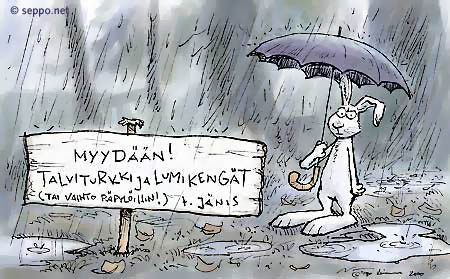 © seppo.net
MYYDÄÄN!
TALVITURKKI ja LUMIKENGÄT
(TAI VAIHTO RÄPYLÖIHIN!) t. JÄNIS